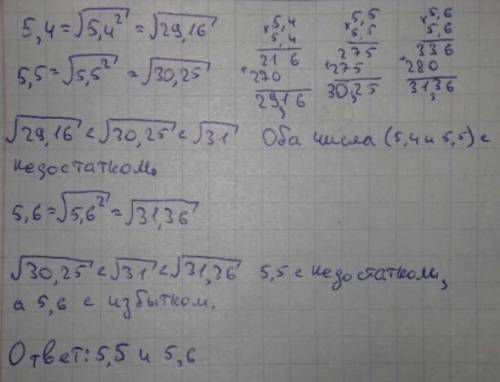 5,4=√5,4²=√29,16
5,5=√5,5²=√30,25
×5,4
5,4
216
+270
29,16
×5,5
5,5
275
+275
30,25
×5,6
5,6
336
+280
31,36
√29,16<√30,25<√31 Оба числа (5,4 и 5,5) с
недостатком.
5,6=√5,6²=√31,36
√30,25<√31<√31,36 5,5 с недостатком,
а 5,6 с избытком.
Ответ: 5,5 и 5,6